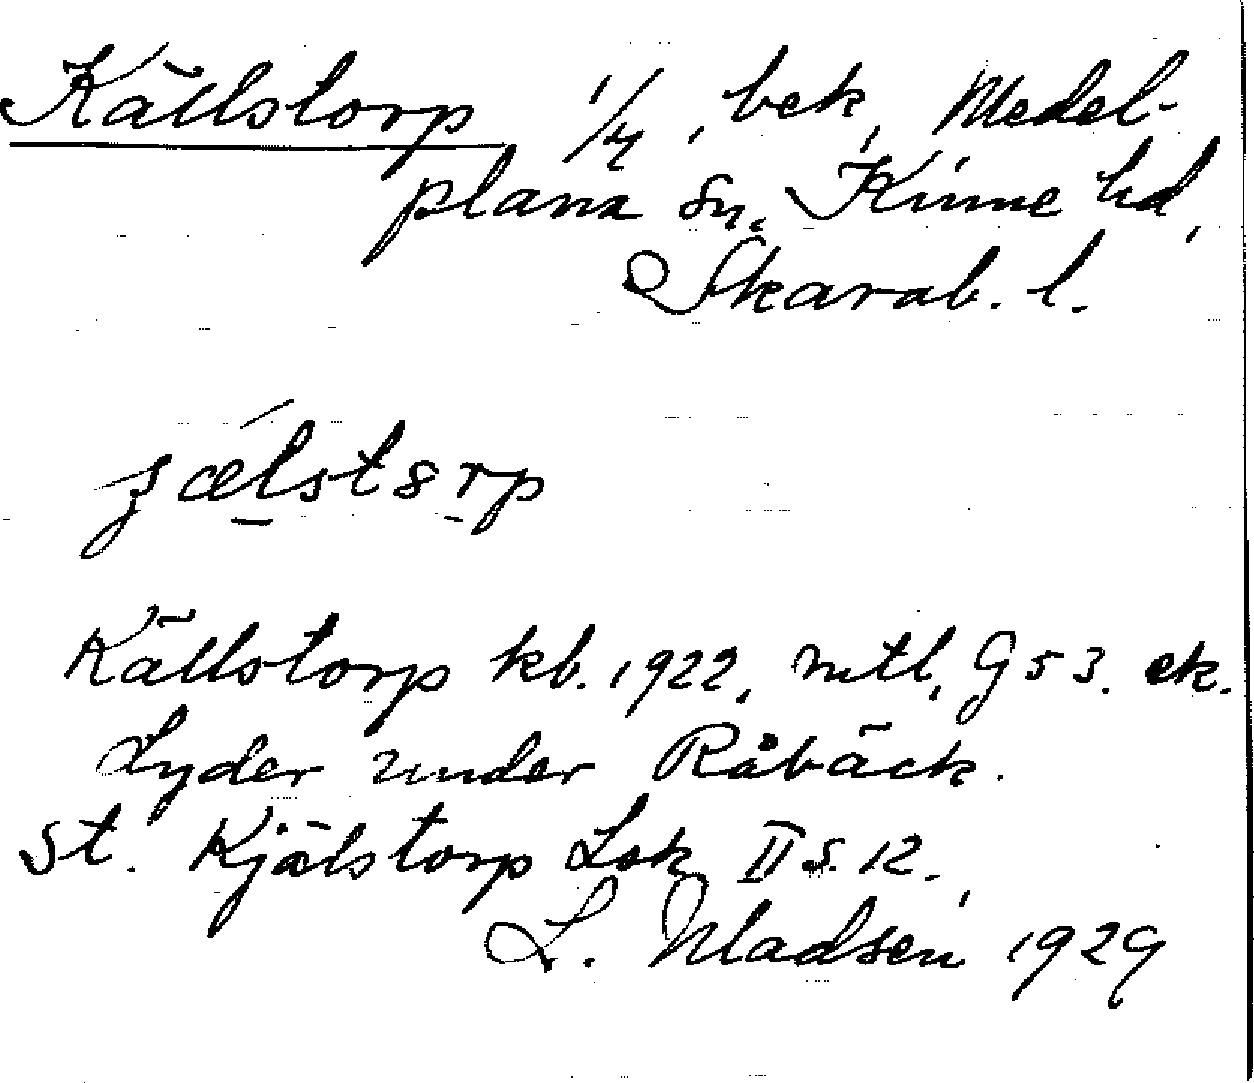 Källstorp 1/4, bek, Medel-
plana sn. Kinne hd,
Skarab. l.
Källstorp kb. 1922, mtl, G53. ek.
Lyder under Råbäck.
St. Kjälstorp Lok II s. 12.,
L. Madsen 1929